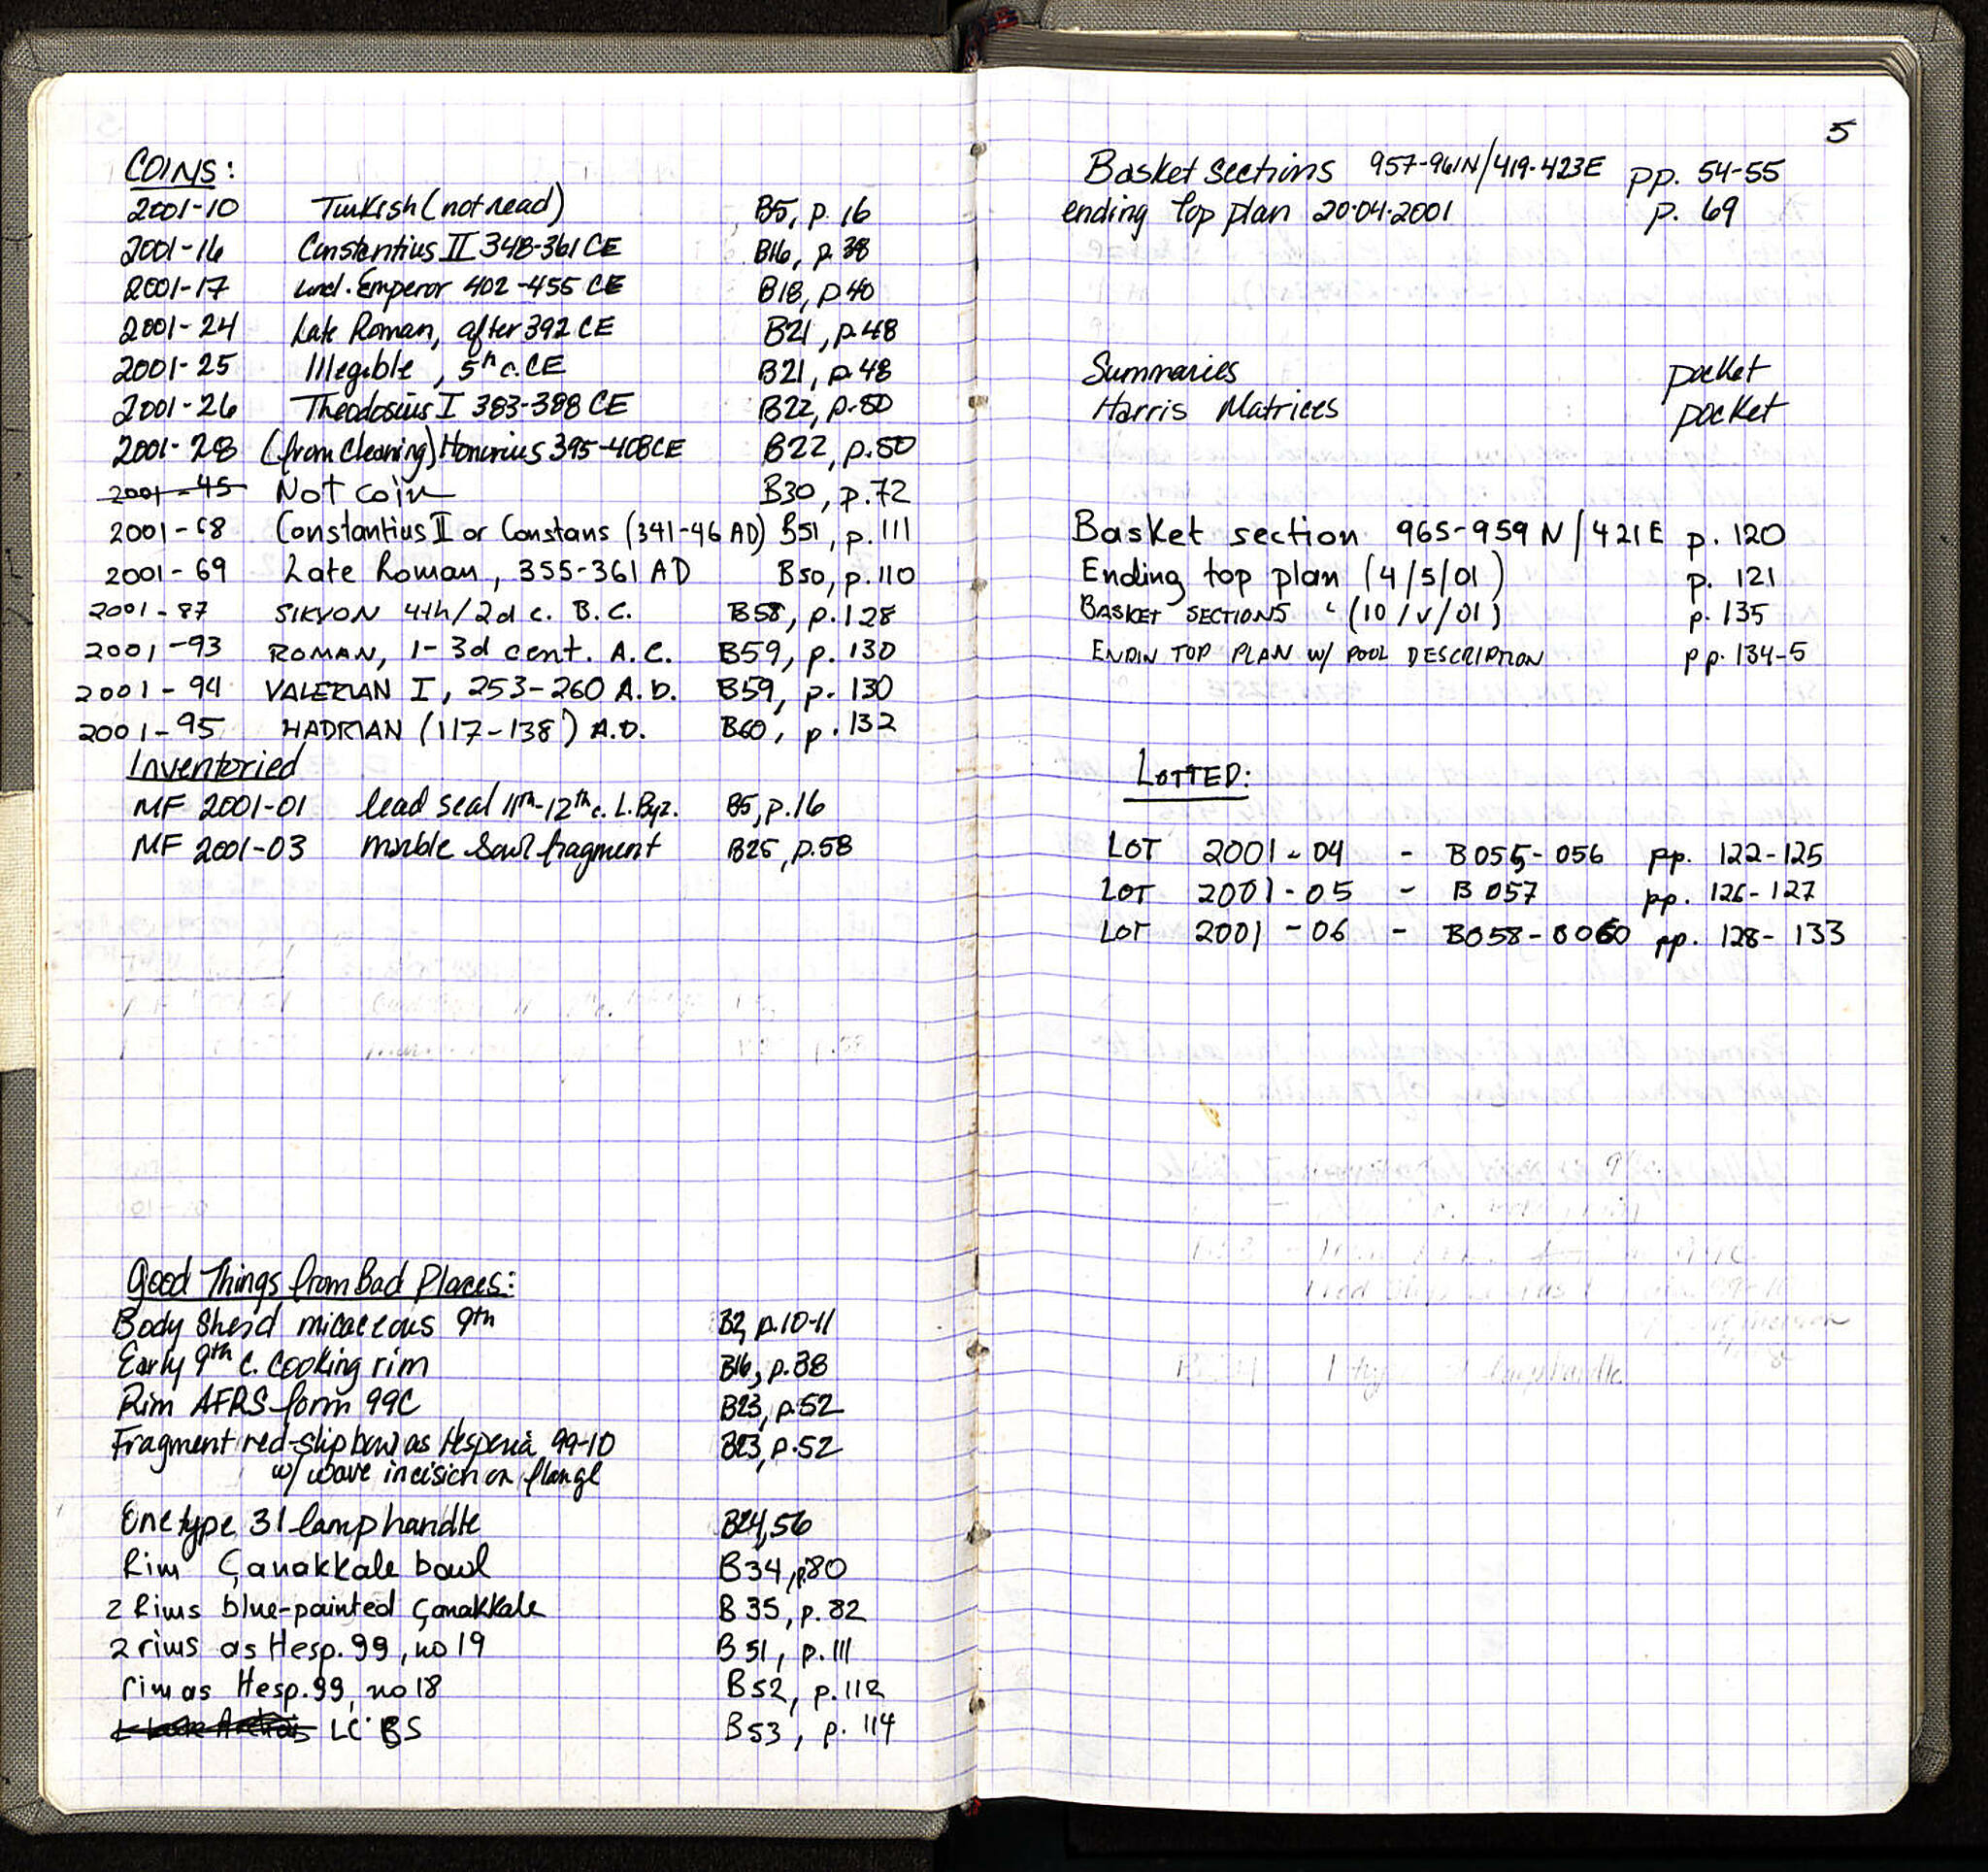 COINS:
2001-10 Turkish (not read) B5, p. 16
2001-16 Constantius II 348-361 CE B16, p. 38
2001-17 und. Emperor 402-455 CE B18, p 40
2001-24 Late Roman, after 392 CE B21, p. 48
2001-25 Illegible, 5th c. CE B21, p. 48
2001-26 Theodosius I 383-388 CE B22, p. 50
2001-28 (from cleaning) Honorius 395-408 CE B22, p. 50
2001-45 Not coin B30, p. 72
2001-68 Constantius II or Constans (341-46 AD) B51, p. 111
2001-69 Late Roman, 355-361 AD B50, p. 110
2001-87 SIKYON 4th/2d c. B.C. B58, p. 128
2001-93 ROMAN, 1-3d cent. A.C. B59, p. 130
2001-94 VALERIAN I, 253-260 A.D. B59, p. 130
2001-95 HADRIAN (117-138) A.D. B60, p. 132
Inventoried
MF 2001-01 lead seal 11th-12th c. L. Byz. B5, p. 16
MF 2001-03 marble bowl fragment B25, p. 58
Good Things from Bad Places:
Body Sherd micaceous 9th B2, p. 10-11
Early 9th c. cooking rim B16, p. 38
Rim AFRS form 99C B23, p. 52
Fragment red-slip bowl as Hesperia 99-10 B23, p. 52
w/ wave incision on flange
One type 31 lamp handle B24, 56
Rim Çanakkale bowl B34, p. 80
2 Rims blue-painted Çanakkale B 35, p. 82
2 rims as Hesp. 99, no 19 B 51, p. 111
rim as Hesp. 99, no 18 B52, p. 112
LC BS B53, p. 114
5
Basket sections 957-961N/419-423E pp. 54-55
ending top plan 20.04.2001 p. 69
Summaries pocket
Harris Matrices pocket
Basket section 965-959 N/421E p. 120
Ending top plan (4/5/01) p. 121
BASKET SECTIONS (10/V/01) p. 135
ENDIN TOP PLAN w/ POOL DESCRIPTION pp. 134-5
LOTTED:
LOT 2001-04 - B055-056 pp. 122-125
LOT 2001-05 - B 057 pp. 126-127
LOT 2001-06 - B058-B060 pp. 128-133